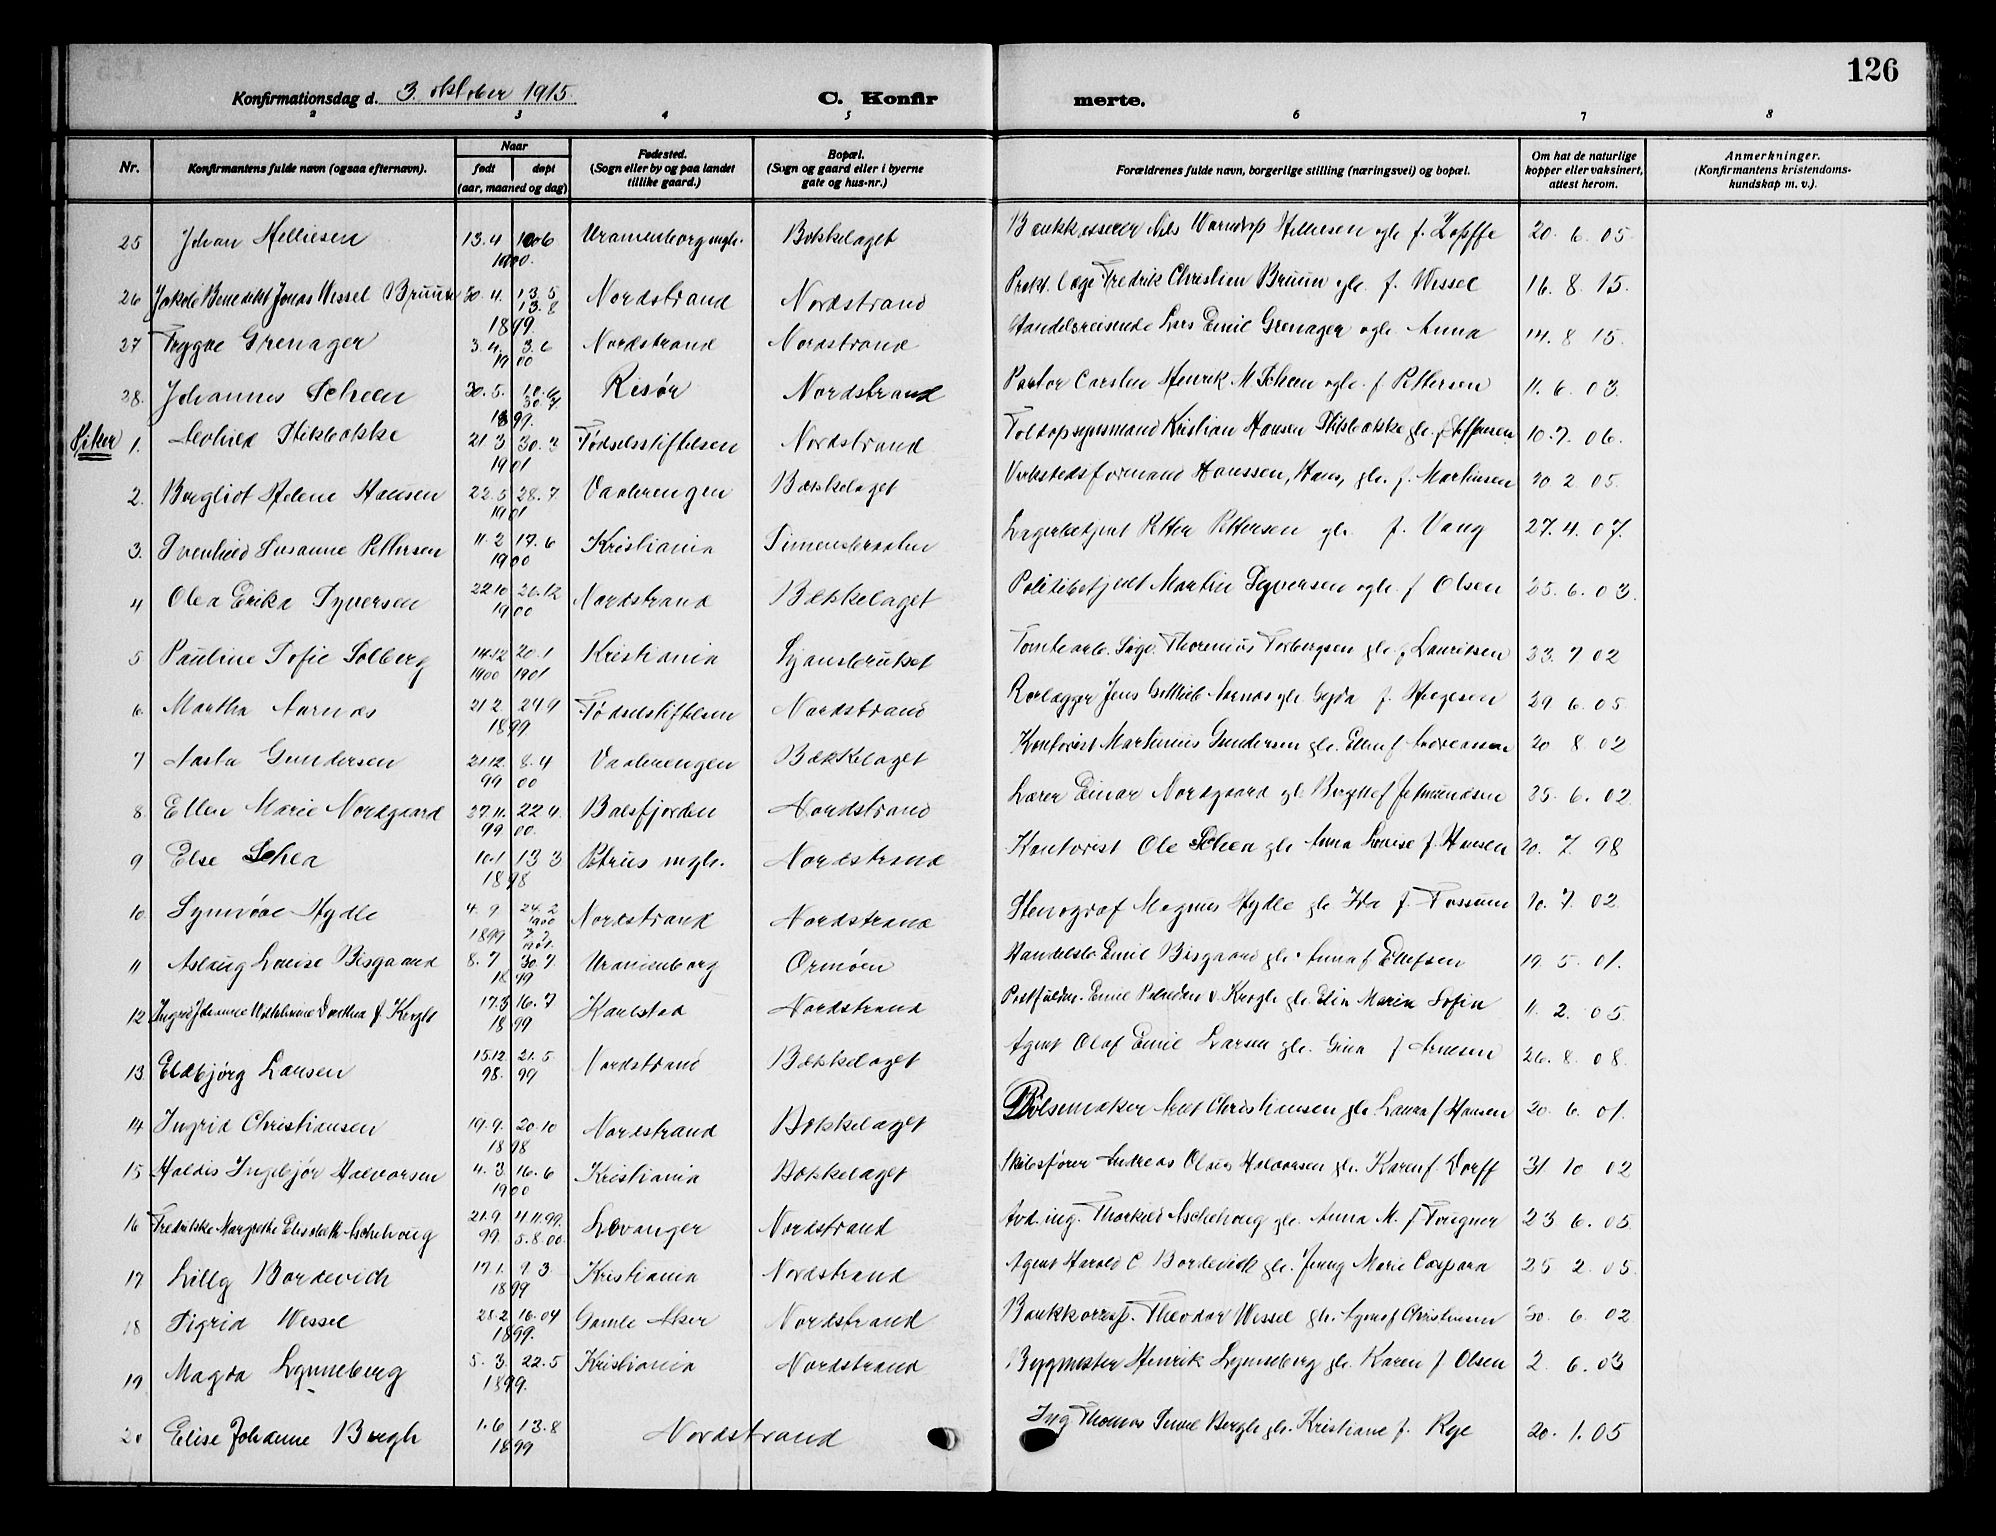 126
Konfirmationsdag d. 3. oktober 1915.
C. Konfirmerte.
2 3 4 5 6 7 8
Nr. Konfirmantens fulde navn (ogsaa efternavn). Naar født døpt (aar, maaned og dag) Fødested. (Sogn eller by og paa landet tillike gaard.) Bopæl. (Sogn og gaard eller i byerne gate og hus-nr.) Forældrenes fulde navn, borgerlige stilling (næringsvei) og bopæl. Om hat de naturlige kopper eller vaksinert, attest herom. Anmerkninger. (Konfirmantens kristendoms- kundskap m. v.).
25 Johan Helliesen 13.4 1900. Uranienborg mgh. Bækkelaget Bankkasserer Nils Helliesen ogh. f. Zapffe 20. 6. 05.
26 Jakob Benedikt Jonas Wessel Bruun 30. 4. 13. 5 1899. Nordstrand Nordstrand Prakt. læge Fredrik Christian Bruun ogh. f. Wessel 16. 8. 15.
27 Trygve Grenager 3. 4. 3. 6 1900 Nordstrand Nordstrand Handelsreisende Lars Emil Grenager ogh. Anna 14. 8 15.
28. Johannes Scheen 30. 5. 1899. Risør Nordstrand Pastor Carsten Henrik M. Scheen ogh. f Pettersen 11. 6. 03.
Piker 1. Stikbakke 21. 3 30. 3 1901 Fødselsstiftelsen Nordstrand Toldopsynsmand Kristian Hansen Stikbakke gh. f Steffensen 10. 7. 06.
2. Bergliot Helene Hansen 22. 5 28. 7. 1901 Vaalerengen Bækkelaget Verkstedsformand Hanssen, Hans, gh. f. Martinsen 20. 2 05.
3. Svenhild Susanne Pettersen 11. 2 17. 6 1900 Kristiania Simensbraaten Lagerbetjent Petter Pettersen gh. f. Vang 27. 4. 07.
4 Olea Erika Syversen 22 10 26. 12 1900 Nordstrand Bækkelaget Politibetjent Martin Syversen ogh. f Olsen 25. 6. 03.
5 Pauline Sofie Solberg 14. 12 1900 20. 1 1901 Kristiania Ljansbruket Tomtearb. Thorenius Torbergsen gh. f Lauritsen 23. 7 02
6. Martha Aarnæs 21 2 24 9 1899 Fødselsstiftelsen Nordstrand Rørlægger Jens Gottlieb Aarnæs gh. Gyda f. Helgesen 29 6. 05.
7 Aasta Gundersen 21. 12. 99 8. 4 00 Vaalerengen Bækkelaget Kontorist Martinius Gundersen gh. Ellen f Andreassen 20 8. 02
8. Ellen Marie Nordgaard 27. 11. 99 22 4. 00. Balsfjorden Nordstrand Lærer Einar Nordgaard gh. 25. 6. 02
9 Else Schea 10. 1 13 3 1898 Petrus mgh. Nordstrand Kontorist Ole Schea gh. Anna Lovise f. Hansen 20. 7 98
10. Synnøve Hydle 4. 9 1899 24. 2 1900 Nordstrand Nordstrand Stenograf Magnus Hydle gh. Ida f. Fossum 10. 7. 02
11 Aslaug Louise Bisgaard 8. 7 30. 7. 1899 Uranienborg Ormøen Handelsb. Emil Bisgaard gh. Anna f Ellefsen 19. 5. 01.
12 Ingrid Johanne Wilhelmine Dorthea v. Krogh 17. 3 16. 7 1899 Karlstad Nordstrand Postfuldm. Emil v. Krogh gh. Elin Maria Sofia 11. 2. 05.
13. Eldbjørg Larsen 15 12. 98. 21. 5. 99 Nordstrand Bækkelaget Agent Olaf Emil Larsen gh. Gina f Arnesen 26. 8. 08.
14 Ingrid Christiansen 19. 9. 20. 10 1898 Nordstrand Bækkelaget Pølsemaker Christiansen gh. Laura f Hansen 20. 6. 01.
15 Haldis Ingebjør Halvorsen 4. 3. 16. 6 1900 Kristiania Bækkelaget Skibsfører Andreas Olaus Halvorsen gh. Karen f Dorff 31 10 02
16 Fredrikke Margrethe Elisabeth Aschehoug 21. 9 99. 4. 11. 99. 5. 8. 00. Levanger Nordstrand Avd. ing. Thorkild Aschehoug gh. Anna M. f Tougner 23 6. 05.
17 Lilly Bordevich 17. 1. 9. 3. 1899 Kristiania Nordstrand Agent Harald C Bordevich gh. Jenny Marie Caspara 25 2. 05.
18 Sigrid Wessel 28. 2 16. 04 1899. Gamle Aker Nordstrand Bankkorresp. Theodor Wessel gh. Agna f Christensen 30. 6. 02
19 Magda Lynneberg 5. 3. 22. 5 1899. Kristiania Nordstrand Bygmester Henrik Lynneberg gh. Karen f. Olsen 2. 6. 03
20 Elise Johanne Bergh 1. 6 13. 8 1899 Nordstrand Ing Thomas Bergh gh. Kristiane f. Rye 20. 1. 05